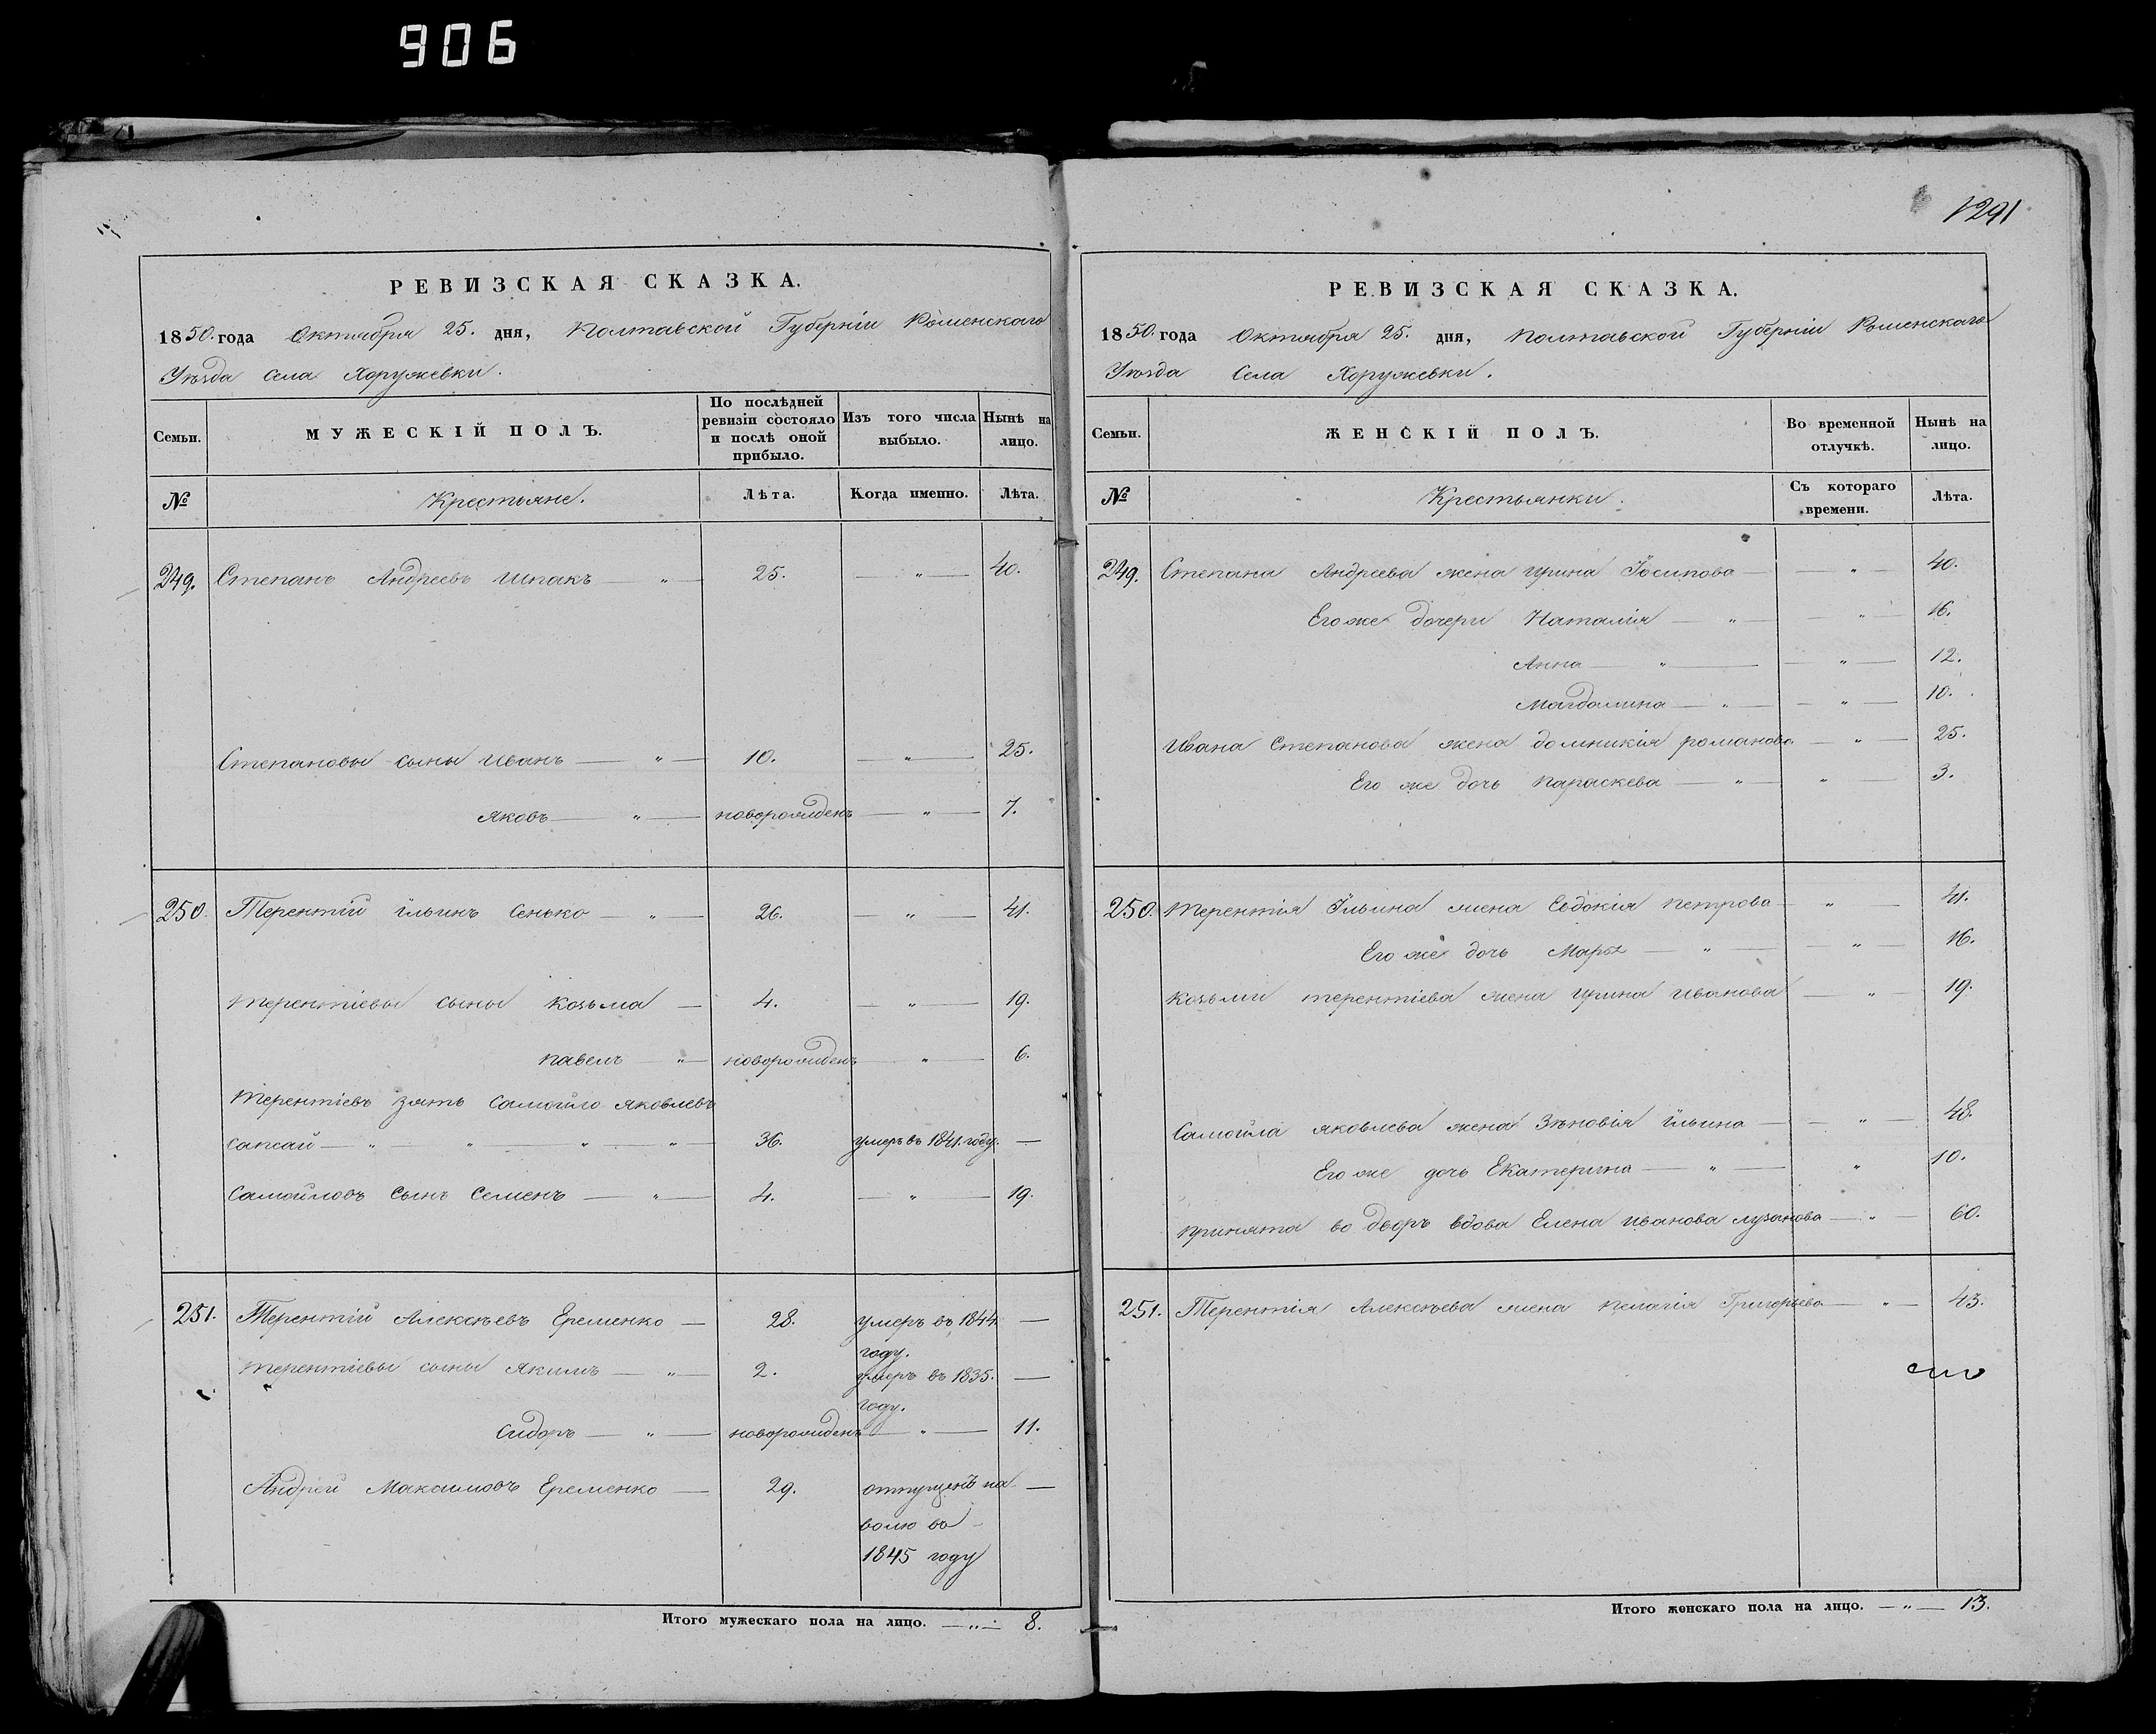 906
1291
РЕВИЗСКАЯ СКАЗКА.
1850. года Октября 25. дня, Полтавской Губерніи Роменскаго
Уѣзда Села Хоружевки.
Семьи.
МУЖЕСКІЙ ПОЛЪ.
По послѣдней
ревизіи состояло
и послѣ оной
прибыло.
Изъ того числа
выбыло.
Нынѣ на
лицо.
№
Крестьяне.
Лѣта.
Когда именно.
Лѣта.
249. Степанъ Андреевъ Шпакъ — " — 25. " — 40.
Степановы сыны Иванъ — " — 10. — " — 25.
Яковъ — " — новорожденъ — " — 7.
250. Терентій Ильинъ Сенько " — 26. " — 41.
Терентіевы сыны Козьма — 4. — " — 19.
Павелъ — " — новорожденъ — " — 6.
Терентіевъ зять Самойло Яковлевъ
Сапсай — " — " — " — " — 36. умеръ въ 1841. году. —
Самойловъ сынъ Семенъ — " — 4. — " — 19.
251. Терентій Алексѣевъ Еременко — 28. умеръ въ 1844. —
году.
Терентіевы сыны Якимъ — " — 2. умеръ въ 1835. —
году.
Сидоръ — " — новорожденъ — " — 11.
Андрей Максимовъ Еременко — 29. отпущенъ на —
волю въ
1845 году
Итого мужескаго пола на лицо. — " — 8.
РЕВИЗСКАЯ СКАЗКА.
1850. года Октября 25. дня, Полтавской Губерніи Роменскаго
Уѣзда Села Хоружевки.
Семьи.
ЖЕНСКІЙ ПОЛЪ.
Во временной
отлучкѣ.
Нынѣ на
лицо.
№
Крестьянки.
Съ котораго
времени.
Лѣта.
249. Степана Андреева жена Ирина Іосипова — — " — 40.
Его же дочери Наталія — " — — " — 16.
Анна — " — — " — 12.
Магдалина — " — — " — 10.
Ивана Степанова жена Домникія Романова — " — 25.
Его же дочь Параскева — " — " — 3.
250. Терентія Ильина жена Евдокія Петрова — " — 41.
Его же дочь Марѳа — " — — " — 16.
Козьми Терентіева жена Ирина Иванова — " — 19.
Самойла Яковлева жена Зѣновія Ильина — — " — 48.
Его же дочь Екатерина — " — " 10.
Принята во дворъ вдова Елена Иванова Лузанова — " — 60.
251. Терентія Алексѣева жена Пелагія Григорьева — " — 43.
Итого женскаго пола на лицо. — " — 13.